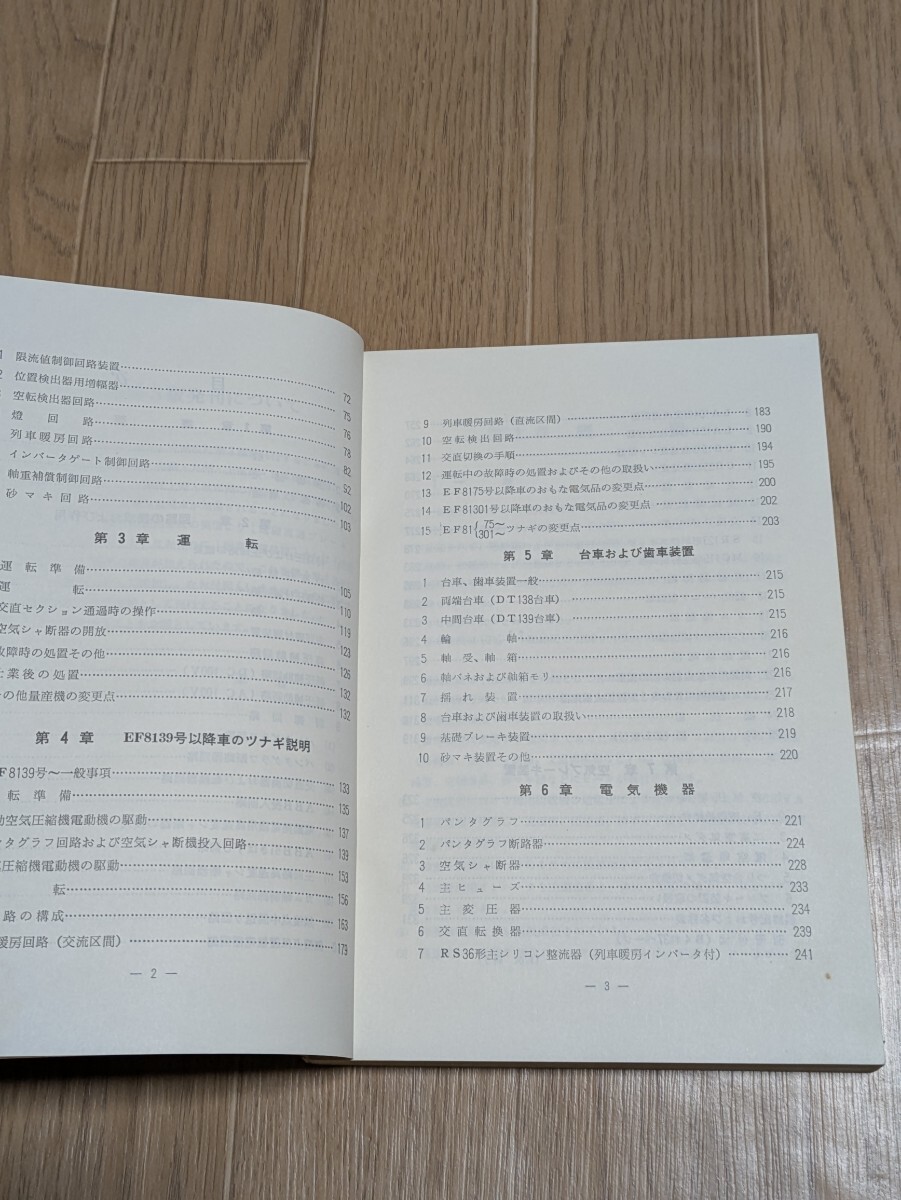 1 限流値制御回路装置
2 位置検出器用増幅器 72
空転検出器回路 75
燈回路 76
列車暖房回路 78
インバータゲート制御回路 82
軸重補償制御回路 52
砂マキ回路 102
103
第3章 運転
運転準備 105
運転 110
交直セクション通過時の操作 119
空気シャ断器の開放 123
故障時の処置その他 126
仕業後の処置 132
その他量産機の変更点 132
第4章 EF8139号以降車のツナギ説明
F8139号〜一般事項 133
転準備 135
動空気圧縮機電動機の駆動 137
ンタグラフ回路および空気シャ断機投入回路 139
圧縮機電動機の駆動 153
転 156
路の構成 163
暖房回路(交流区間) 179
— 2 —
9 列車暖房回路(直流区間) 183
10 空転検出回路 190
11 交直切換の手順 194
12 運転中の故障時の処置およびその他の取扱い 195
13 EF8175号以降車のおもな電気品の変更点 200
14 EF81301号以降車のおもな電気品の変更点 202
15 EF81{75〜 301〜 ツナギの変更点 203
第5章 台車および歯車装置
1 台車、歯車装置一般 215
2 両端台車(DT138台車) 215
3 中間台車(DT139台車) 215
4 輪軸 216
5 軸受、軸箱 216
6 軸バネおよび軸箱モリ 216
7 揺れ装置 217
8 台車および歯車装置の取扱い 218
9 基礎ブレーキ装置 219
10 砂マキ装置その他 220
第6章 電気機器
1 パンタグラフ 221
2 パンタグラフ断路器 224
3 空気シャ断器 228
4 主ヒューズ 233
5 主変圧器 234
6 交直転換器 239
7 RS36形主シリコン整流器(列車暖房インバータ付) 241
— 3 —